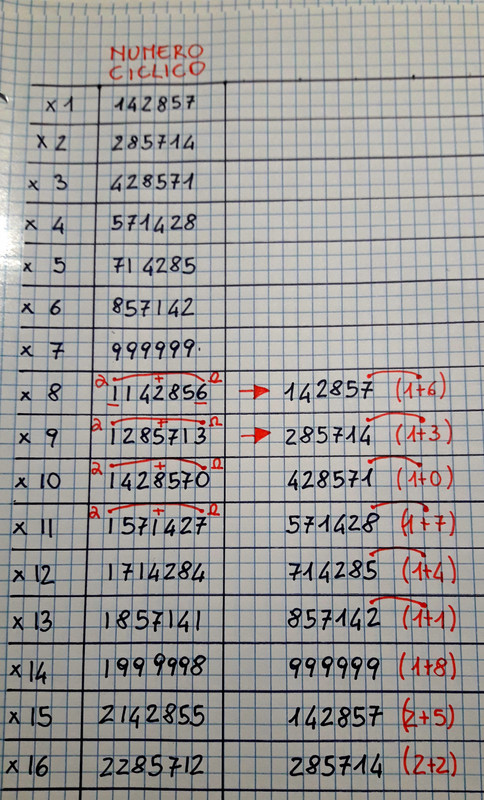 NUMERO
CICLICO
x 1 142857
x 2 285714
x 3 428571
x 4 571428
x 5 714285
x 6 857142
x 7 999999.
x 8 α 1142856 Ω + → 142857 (1+6)
x 9 α 1285713 Ω + → 285714 (1+3)
x 10 α 1428570 Ω + 428571 (1+0)
x 11 α 1571427 Ω + 571428 (1+7)
x 12 1714284 714285 (1+4)
x 13 1857141 857142 (1+1)
x 14 1999998 999999 (1+8)
x 15 2142855 142857 (2+5)
x 16 2285712 285714 (2+2)